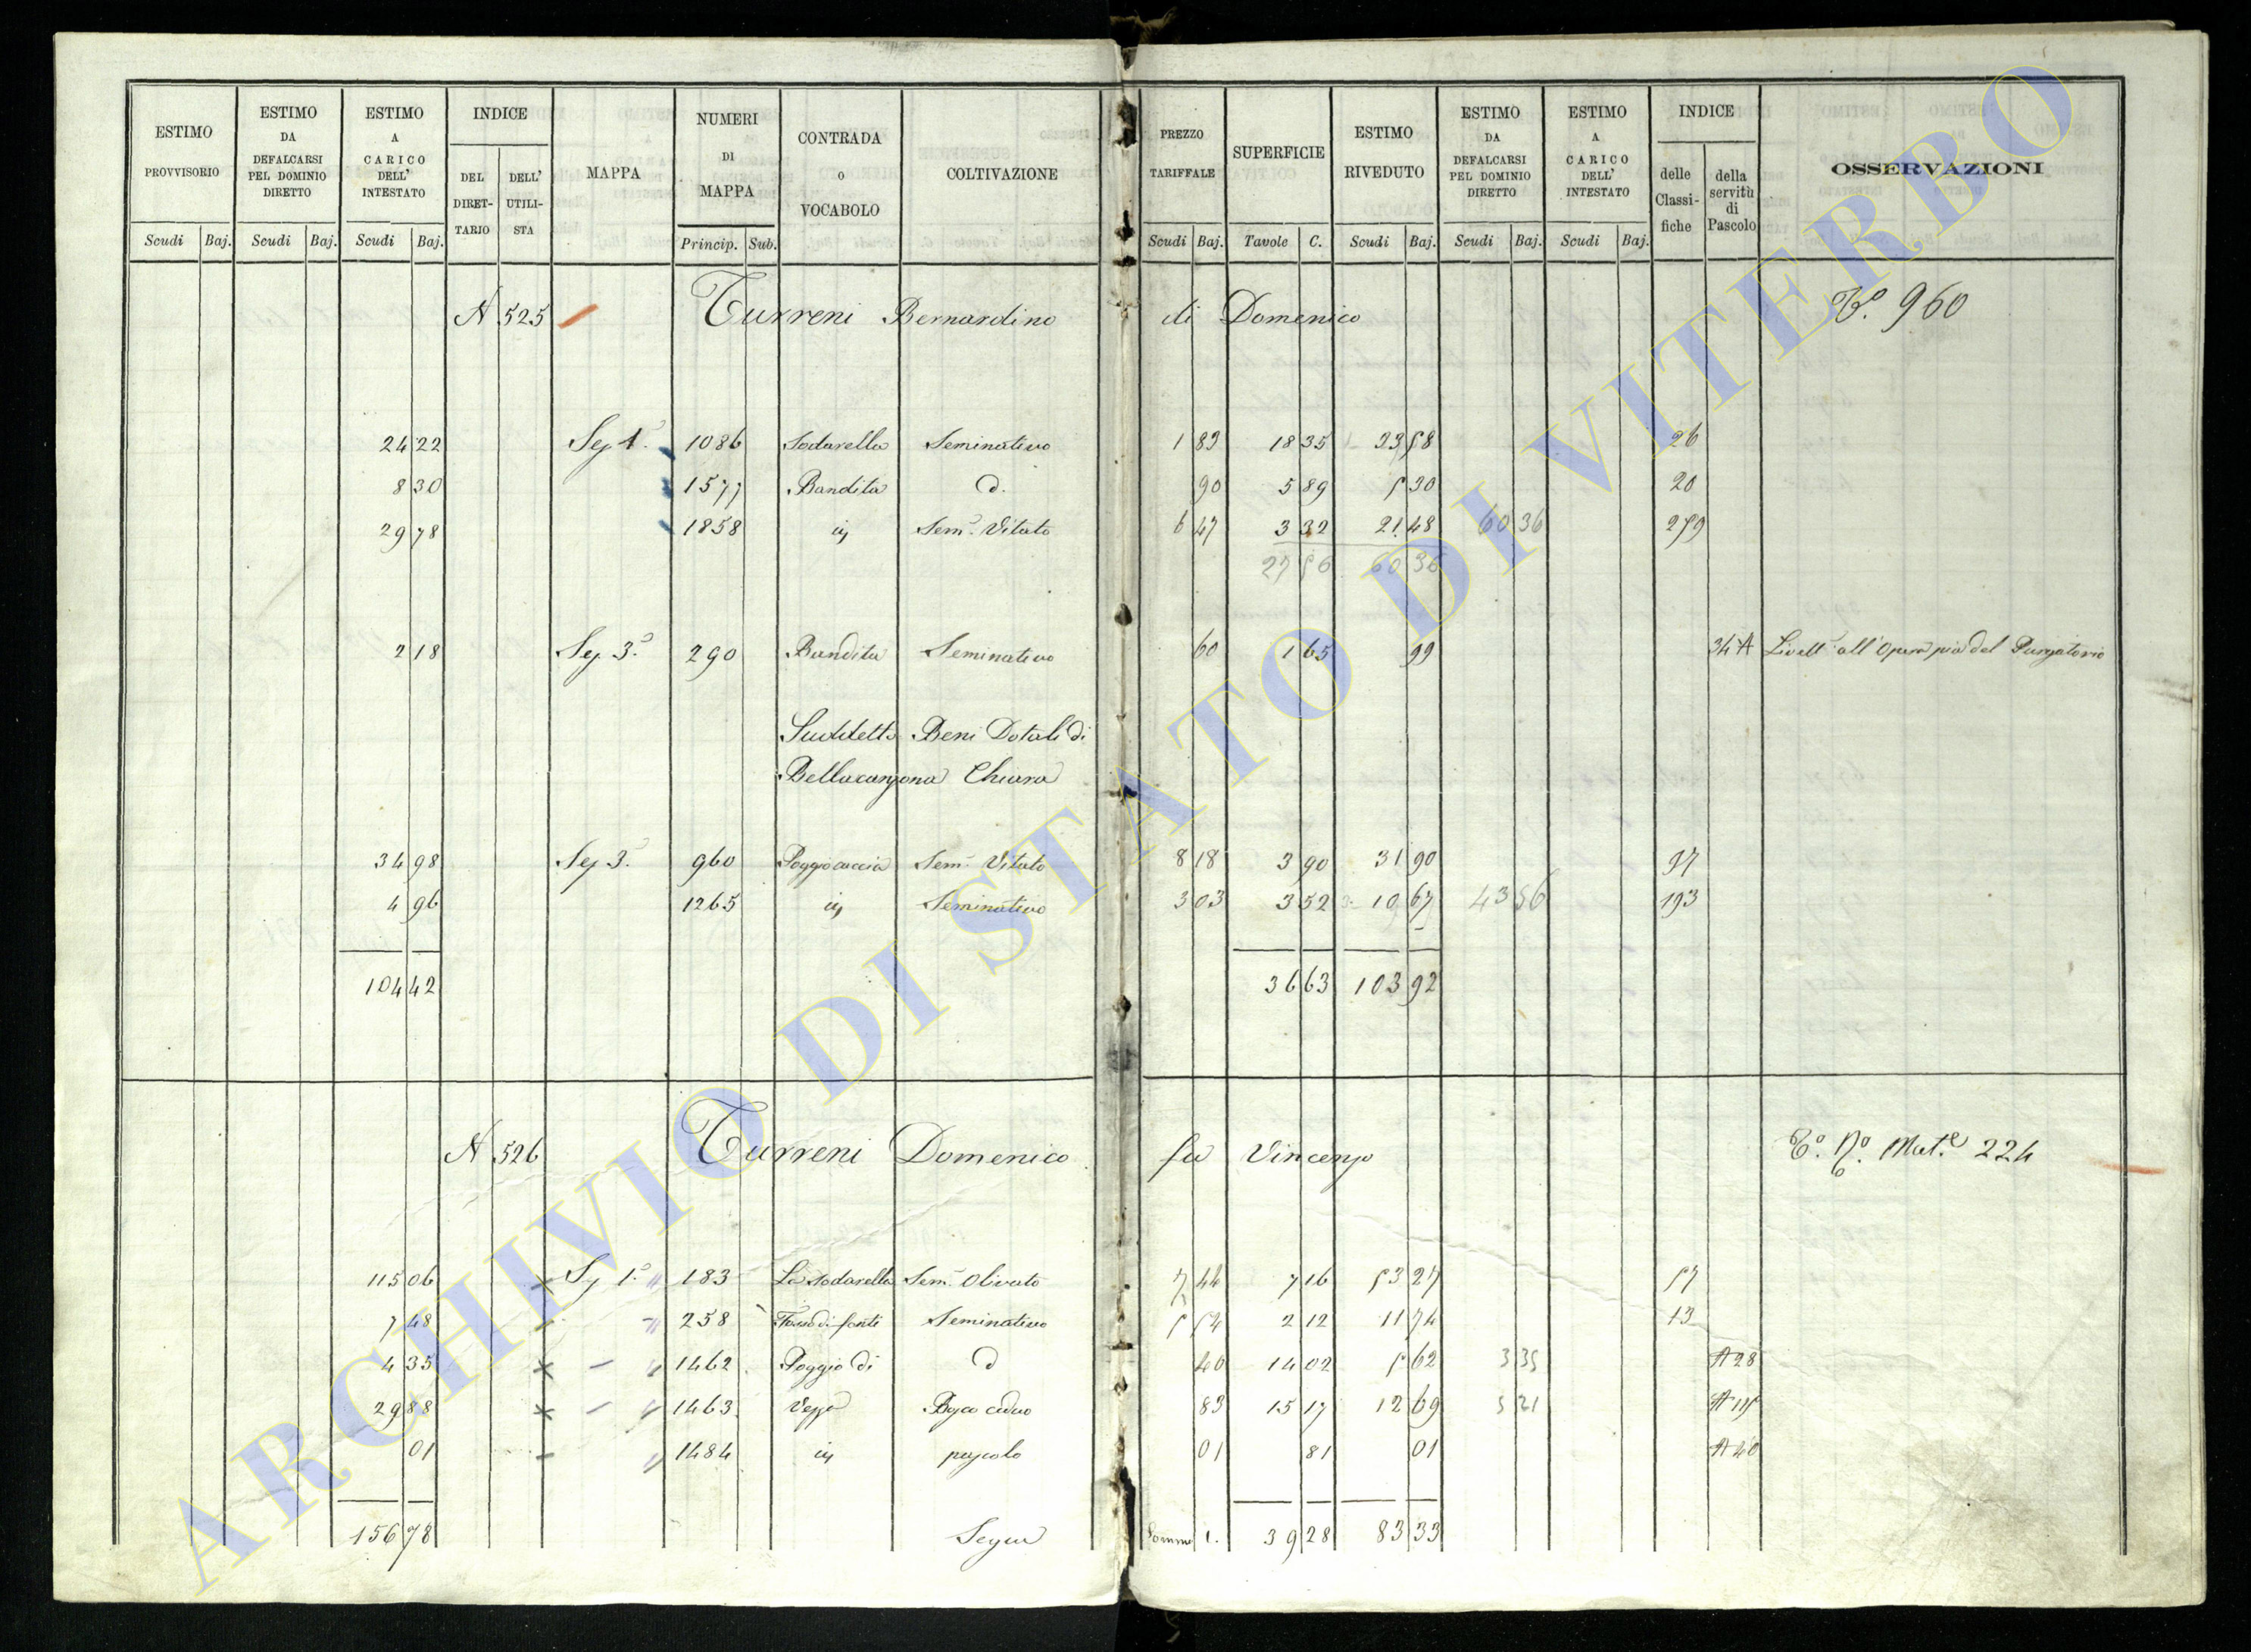 ESTIMO PROVVISORIO | ESTIMO DA DEFALCARSI PEL DOMINIO DIRETTO | ESTIMO A CARICO DELL' INTESTATO | INDICE DEL DIRETTARIO | DELL' UTILISTA | MAPPA | NUMERI DI MAPPA | CONTRADA O VOCABOLO | COLTIVAZIONE | PREZZO TARIFFALE | SUPERFICIE | ESTIMO RIVEDUTO | ESTIMO DA DEFALCARSI PEL DOMINIO DIRETTO | ESTIMO A CARICO DELL' INTESTATO | INDICE delle Classifiche | della servitù di Pascolo | OSSERVAZIONI
Scudi | Baj. | Scudi | Baj. | Scudi | Baj. | Princip. | Sub. | Scudi | Baj. | Tavole | C. | Scudi | Baj. | Scudi | Baj. | Scudi | Baj.
N 525 Turreni Bernardino di Domenico 960
24 22 Sez 1ª 1086 Sodarella Seminativo 1 89 18 35 23 58 26
8 30 1577 Bandita d. 90 5 89 5 30 20
29 78 1858 iij Semº Vitato 6 47 3 32 21 48 60 36 259
27 56 60 36
2 18 Sez 3ª 290 Bandita Seminativo 60 1 65 99 34 A Livellº all'Opera pia del Purgatorio
Suddetto Beni Dotali di
Bellacanzona Chiara
34 98 Sez 3ª 960 Poggio caccia Semº Vitato 8 18 3 90 31 90 97
4 96 1265 iij Seminativo 3 03 3 52 10 67 43 56 193
104 42 36 63 103 92
N 526 Turreni Domenico fu Vincenzo Mat.e 224
115 06 Sez 1ª 183 La Sodarella Semº Olivato 7 44 7 16 53 27 57
7 48 258 Fosso di fonti Seminativo 5 54 2 12 11 74 13
4 35 1462 Poggio di d 40 14 02 5 62 3 35 A 28
29 88 1463 Vezza Bosco ceduo 83 15 17 12 69 5 21
01 1484 iij pascolo 01 81 01 A 40
156 78 Segue Somma 39 28 83 33
ARCHIVIO DI STATO DI VITERBO